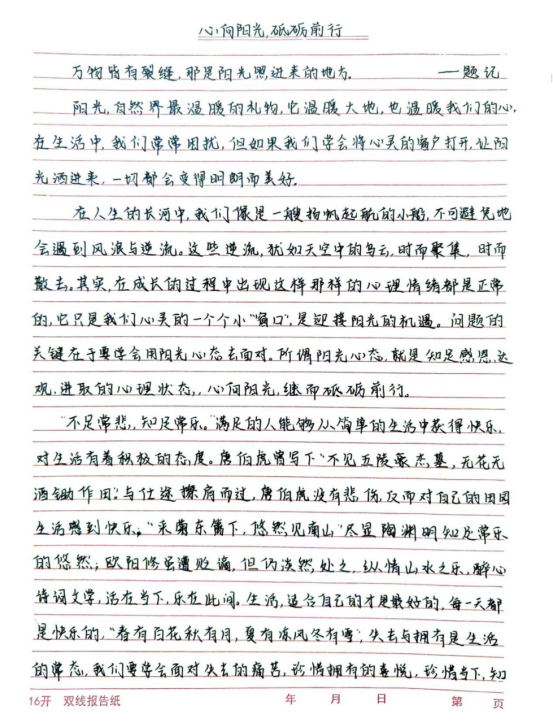 心向阳光,砥砺前行
万物皆有裂缝,那是阳光照进来的地方. ——题记
阳光,自然界最温暖的礼物,它温暖大地,也温暖我们的心.
在生活中,我们常常困扰,但如果我们学会将心灵的窗户打开,让阳
光洒进来,一切都会变得明朗而美好.
在人生的长河中,我们像是一艘扬帆起航的小船,不可避免地
会遇到风浪与逆流。这些逆流,犹如天空中的乌云,时而聚集,时而
散去。其实,在成长的过程中出现这样那样的心理情绪都是正常
的,它只是我们心灵的一个个小"窗口",是迎接阳光的机遇。问题的
关键在于要学会用阳光心态去面对。所谓阳光心态,就是知足感恩、达
观、进取的心理状态,,心向阳光,继而砥砺前行。
"不足常悲,知足常乐。"满足的人能够从简单的生活中获得快乐,
对生活有着积极的态度。唐伯虎曾写下"不见五陵豪杰墓,无花无
酒锄作田",与仕途擦肩而过,唐伯虎没有悲伤,反而对自己的田园
生活感到快乐。"采菊东篱下,悠然见南山"尽显陶渊明知足常乐
的悠然;欧阳修虽遭贬谪,但仍淡然处之,纵情山水之乐,醉心
诗词文学,活在当下,乐在此间。生活,适合自己的才是最好的,每一天都
是快乐的,"春有百花秋有月,夏有凉风冬有雪",失去与拥有是生活
的常态,我们要学会面对失去的痛苦,珍惜拥有的喜悦,珍惜当下,知
16开 双线报告纸 年 月 日 第 页